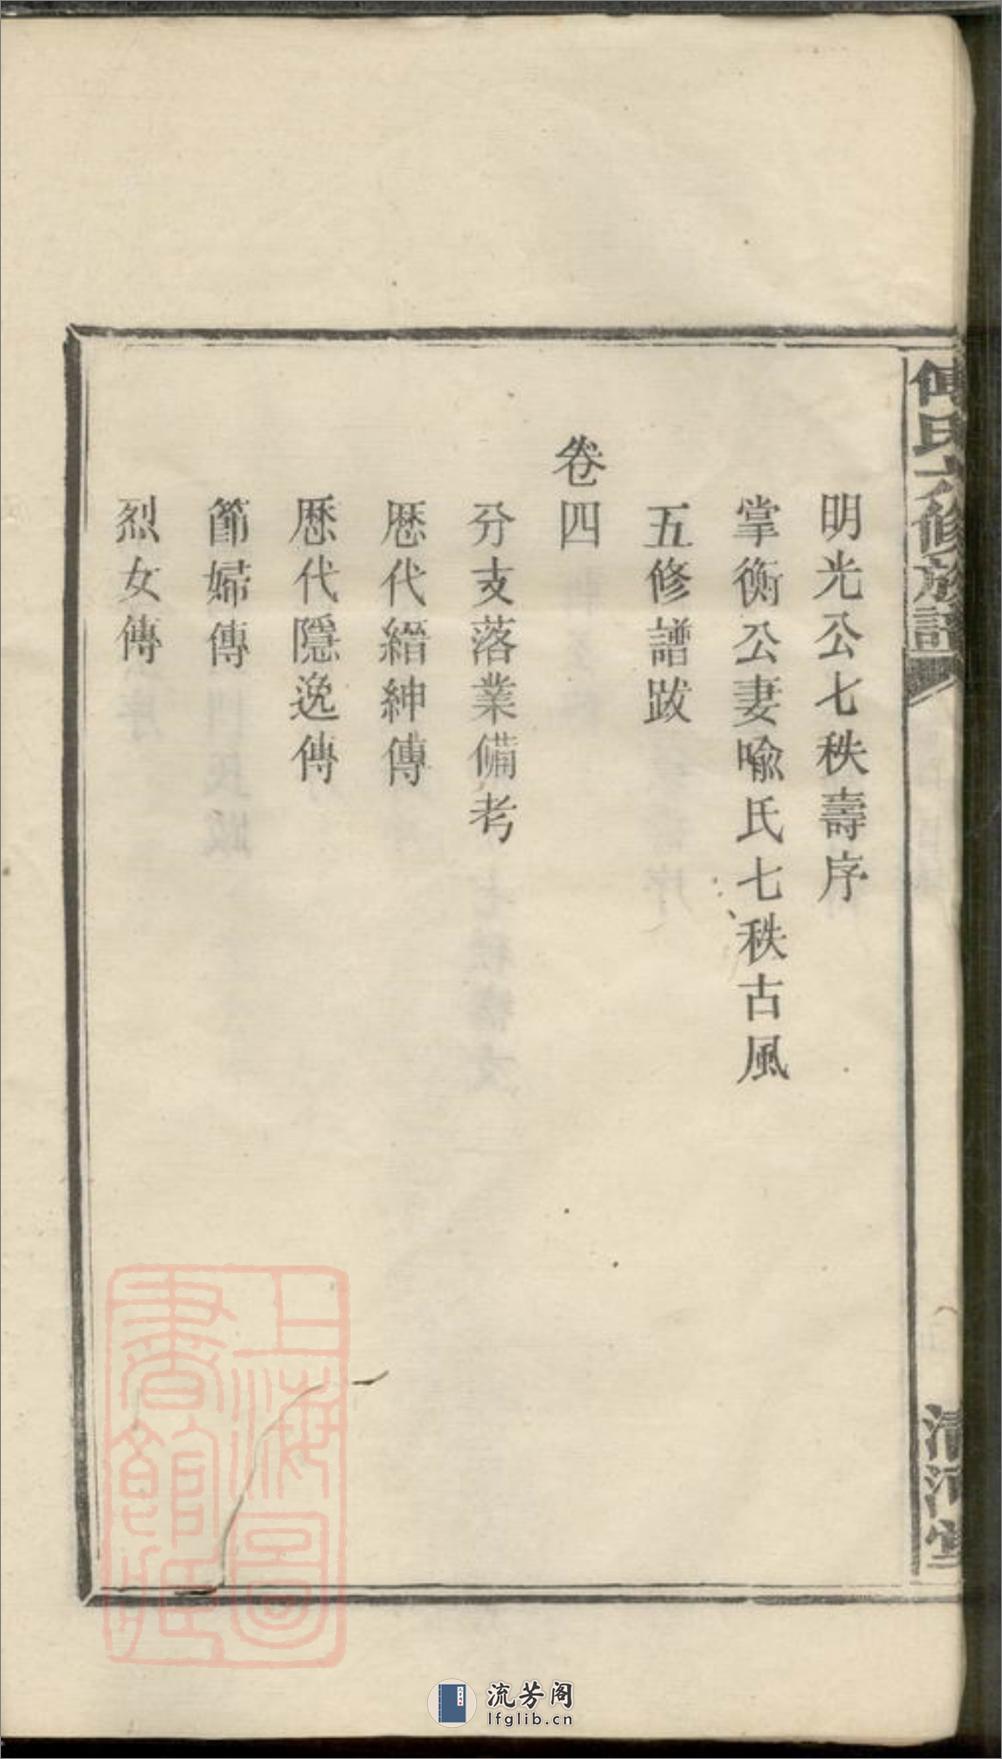 傅氏六修族譜
清河堂
明光公七秩壽序
掌衡公妻喻氏七秩古風
五修譜跋
卷四
分支落業備考
歷代縉紳傳
歷代隱逸傳
節婦傳
烈女傳
上海圖
書館藏
流芳阁
lfglib.cn